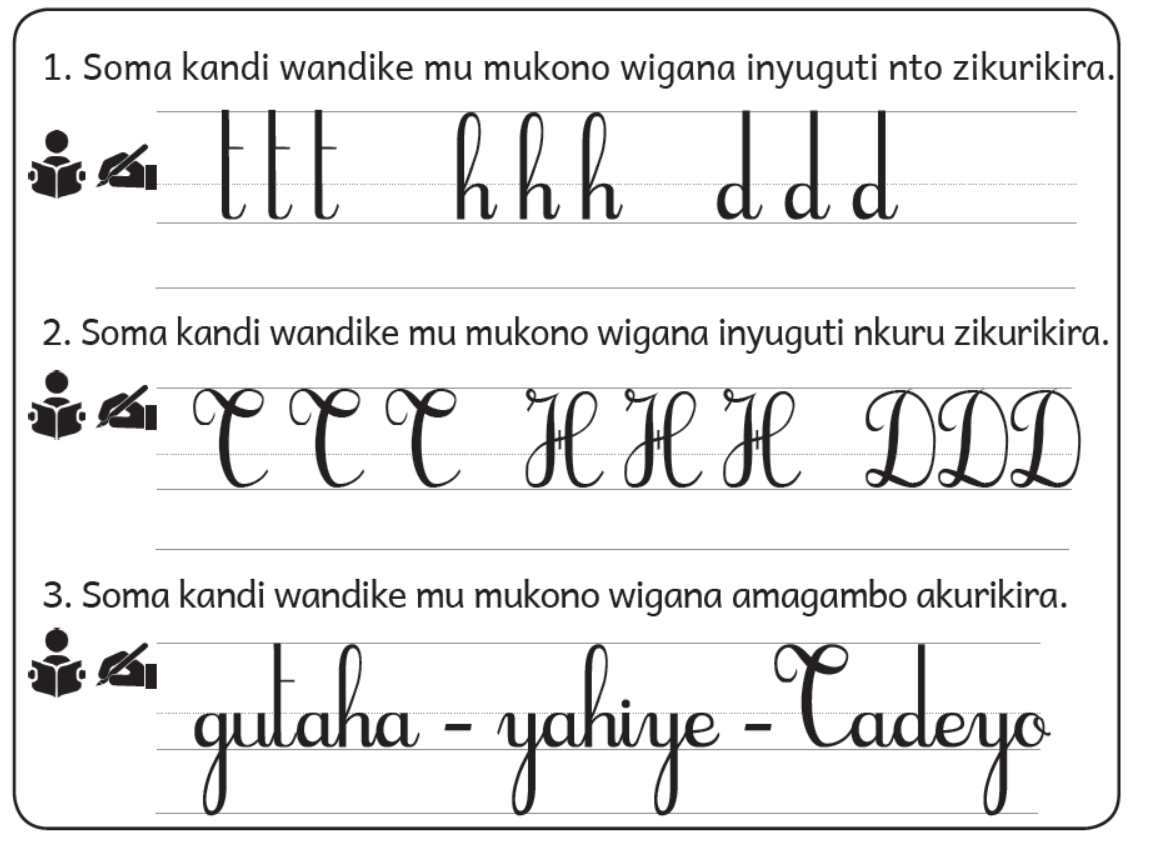 1. Soma kandi wandike mu mukono wigana inyuguti nto zikurikira.
t t t h h h d d d
2. Soma kandi wandike mu mukono wigana inyuguti nkuru zikurikira.
T T T H H H D D D
3. Soma kandi wandike mu mukono wigana amagambo akurikira.
gutaha - yahiye - Tadeyo